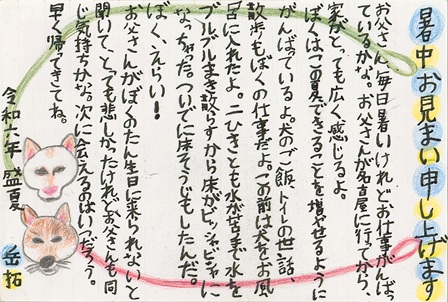 暑中お見まい申し上げます
お父さん、毎日暑いけれどお仕事がんばっ
ているかな。お父さんが名古屋に行ってから、
家がとっても広く感じるよ。
ぼくはこの夏できることを増やせるように
がんばっているよ。犬のご飯、トイレの世話、
散歩もぼくの仕事だよ。この前は犬をお風
呂に入れたよ。二ひきとも水が苦手で水を
ブルブルまき散らすから床がビッシャビシャに
なっちゃった。ついでに床そうじもしたんだ。
ぼく、えらい!
お父さんがぼくのたん生日に来られないと
聞いて、とっても悲しかったけれどお父さんも同
じ気持ちかな。次に会えるのはいつだろう。
早く帰ってきてね。
令和六年 盛夏
岳拓